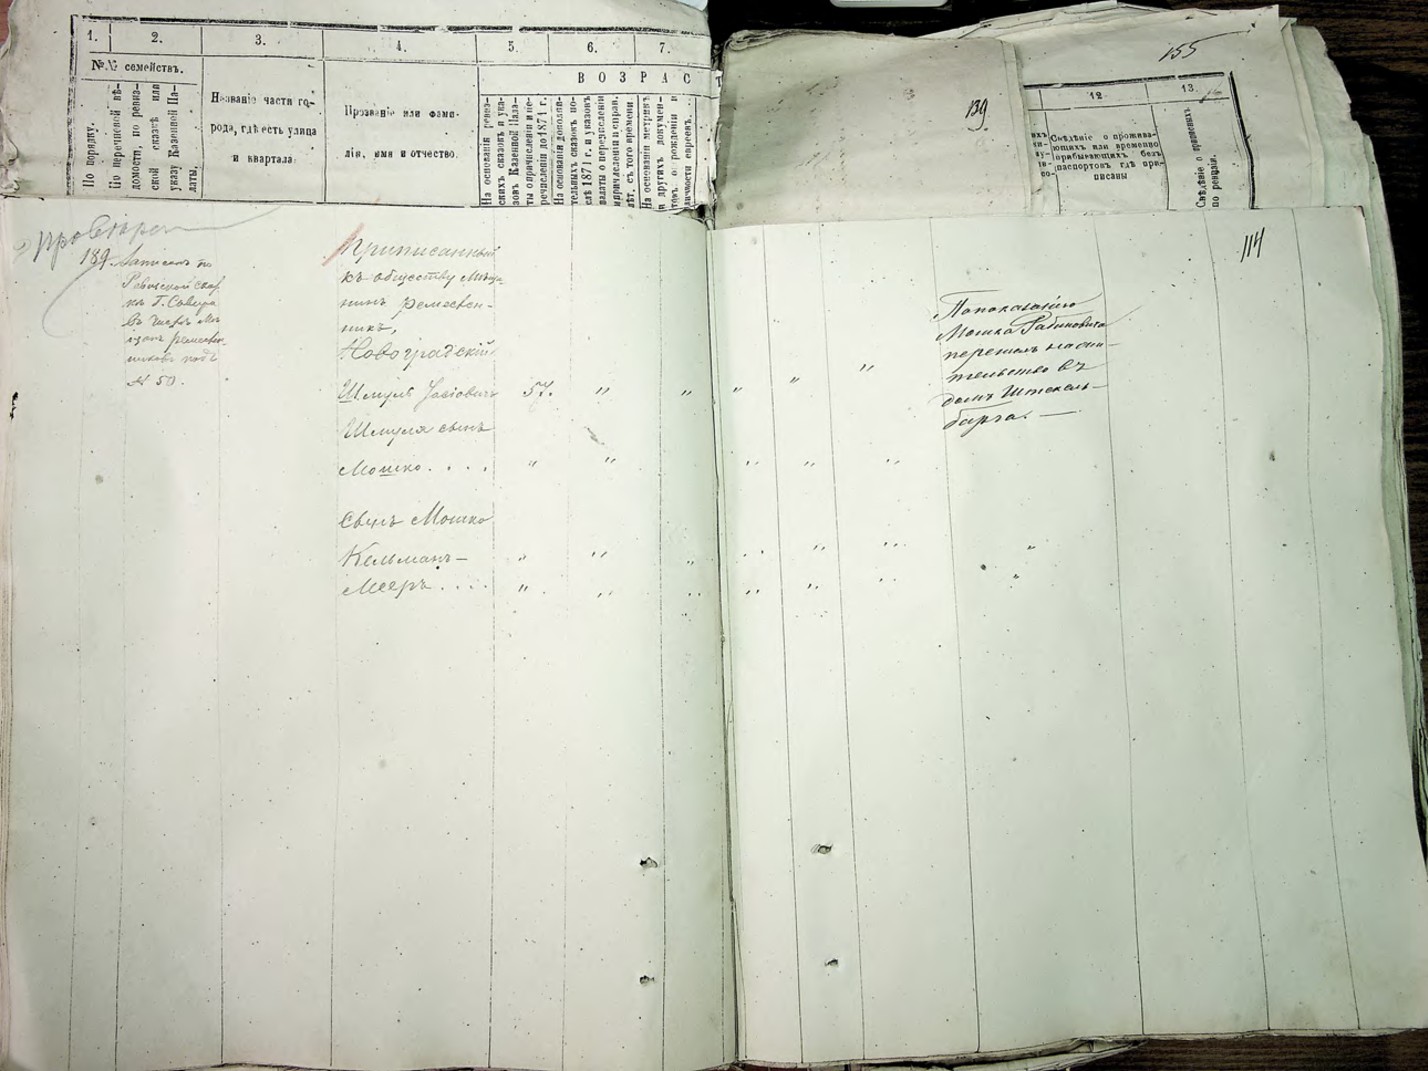 1.
2.
3.
4.
5.
6.
7.
№№ семействъ.
По порядку.
По перечневой вѣ-
домости, по ревиз-
ской сказкѣ или
указу Казенной Па-
латы.
Названіе части го-
рода, гдѣ есть улица
и квартала
Прозваніе или фами-
лія, имя и отчество.
ВОЗРАСТ
На основаніи ревиз-
скихъ сказокъ и ука-
зовъ Казенной Пала-
ты о причисленіи и пе-
речисленіи до 1871 г.
На основаніи дополни-
тельныхъ сказокъ по-
слѣ 1871 г. и указовъ
палаты о перечисленіи
и причисленіи и справ.
лѣт. съ того времени.
На основаніи метрикъ
и другихъ докумен-
товъ о рожденіи и
личности евреевъ.
139
155
12
13.
Свѣдѣніе о прожива-
ющихъ или временно
прибывающихъ безъ
паспортовъ гдѣ при-
писаны
Свѣдѣніе о приписныхъ
по ревизіи.
114
189. Записанъ по
Ревизской сказ
въ числѣ Мѣ
щанъ ремеслен-
никовъ подъ
№ 50.
Приписанный
къ обществу Мѣща-
нинъ ремеслен-
никъ,
Новоградскій
Шмуль 57. " " " " "
Шмуля сынъ
Мошко . . . . " " " " "
Сынъ Мошко
Кельманъ — " " " " " " "
Мееръ . . . . " " " " " " "
По показанію
Мошка Рабиновича
перешелъ на жи-
тельство въ
домъ Штекель-
барга. —